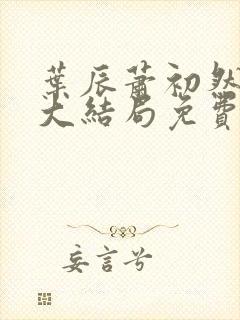 葉辰蕭初然
大結局免費
妄言兮